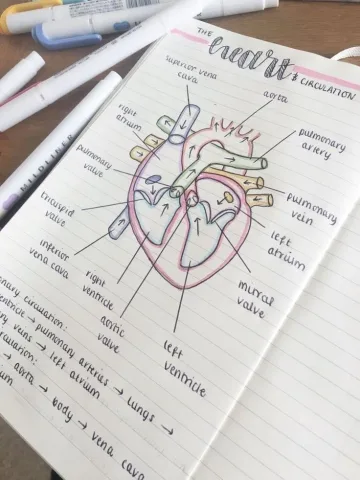 THE
heart
& CIRCULATION
superior vena
cava
aorta
right
atrium
pulmonary
artery
pulmonary
valve
pulmonary
vein
tricuspid
valve
left
atrium
inferior
vena cava
right
ventricle
mitral
valve
aortic
valve
left
ventricle
circulation:
→ pulmonary arteries → lungs →
veins → left atrium
→ aorta → body → vena cava
MIDLINER